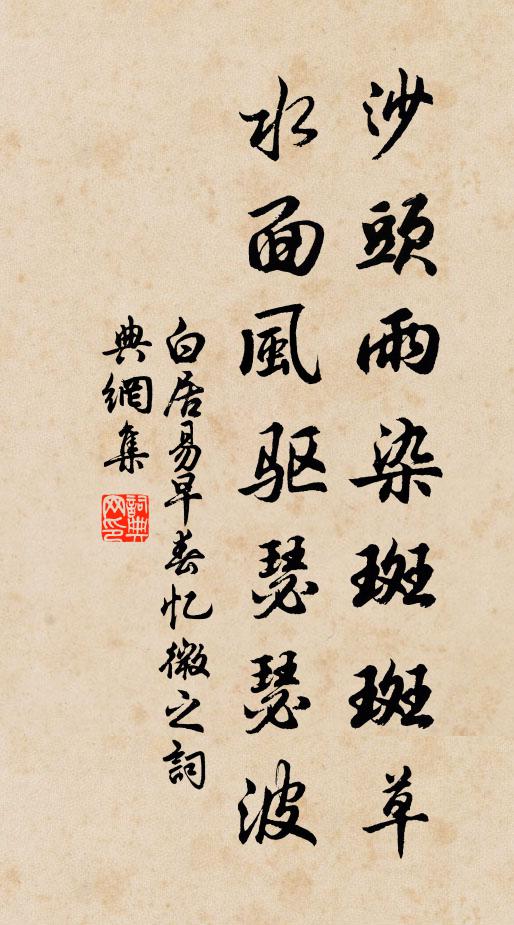 沙頭雨染斑斑草
水面風驱瑟瑟波
白居易早春忆微之詞
典網集
詞典網印